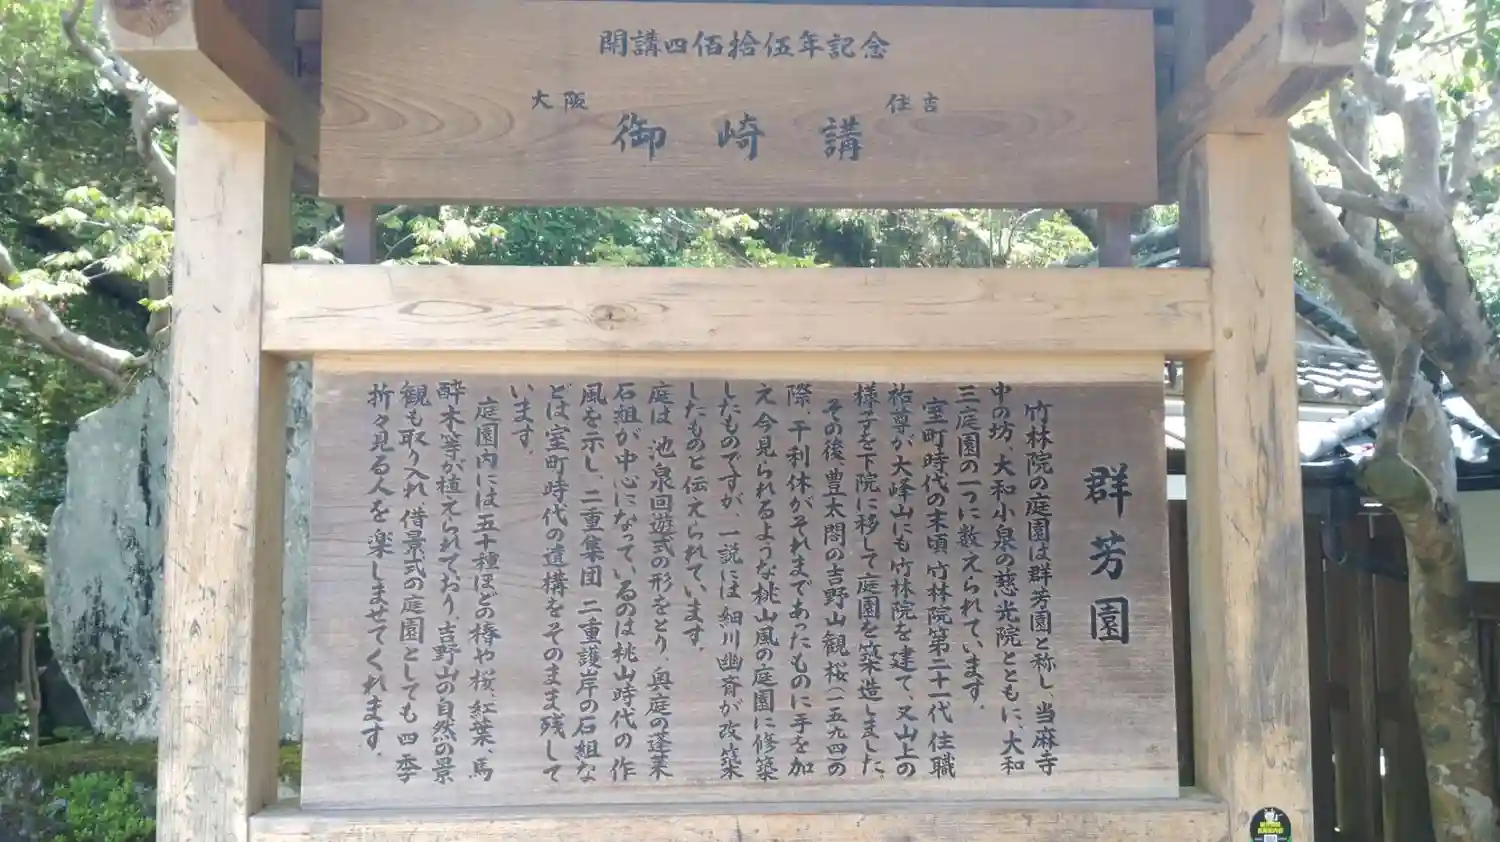 開講四佰拾伍年記念
大阪 住吉
御崎講
群芳園
竹林院の庭園は群芳園と称し、当麻寺
中の坊、大和小泉の慈光院とともに、大和
三庭園の一つに数えられています。
室町時代の末頃、竹林院第二十一代住職
祐尊が大峰山にも竹林院を建て、又山上の
様子を下院に移して庭園を築造しました。
その後、豊太閤の吉野山観桜(一五九四)の
際、千利休がそれまであったものに手を加
え今見られるような桃山風の庭園に修築
したものですが、一説には細川幽斉が改築
したものと伝えられています。
庭は、池泉回遊式の形をとり、奥庭の蓬莱
石組が中心になっているのは桃山時代の作
風を示し、二重集団、二重護岸の石組な
どは室町時代の遺構をそのまま残して
います。
庭園内には五十種ほどの椿や桜、紅葉、馬
酔木等が植えられており、吉野山の自然の景
観も取り入れ、借景式の庭園としても四季
折々見る人を楽しませてくれます。